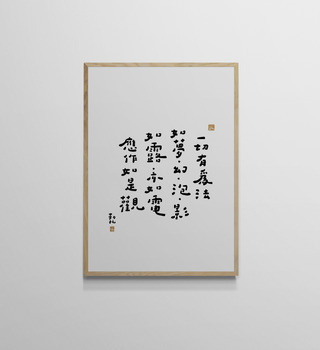 一切有為法
如夢·幻·泡·影
如露·亦如電
應作如是觀